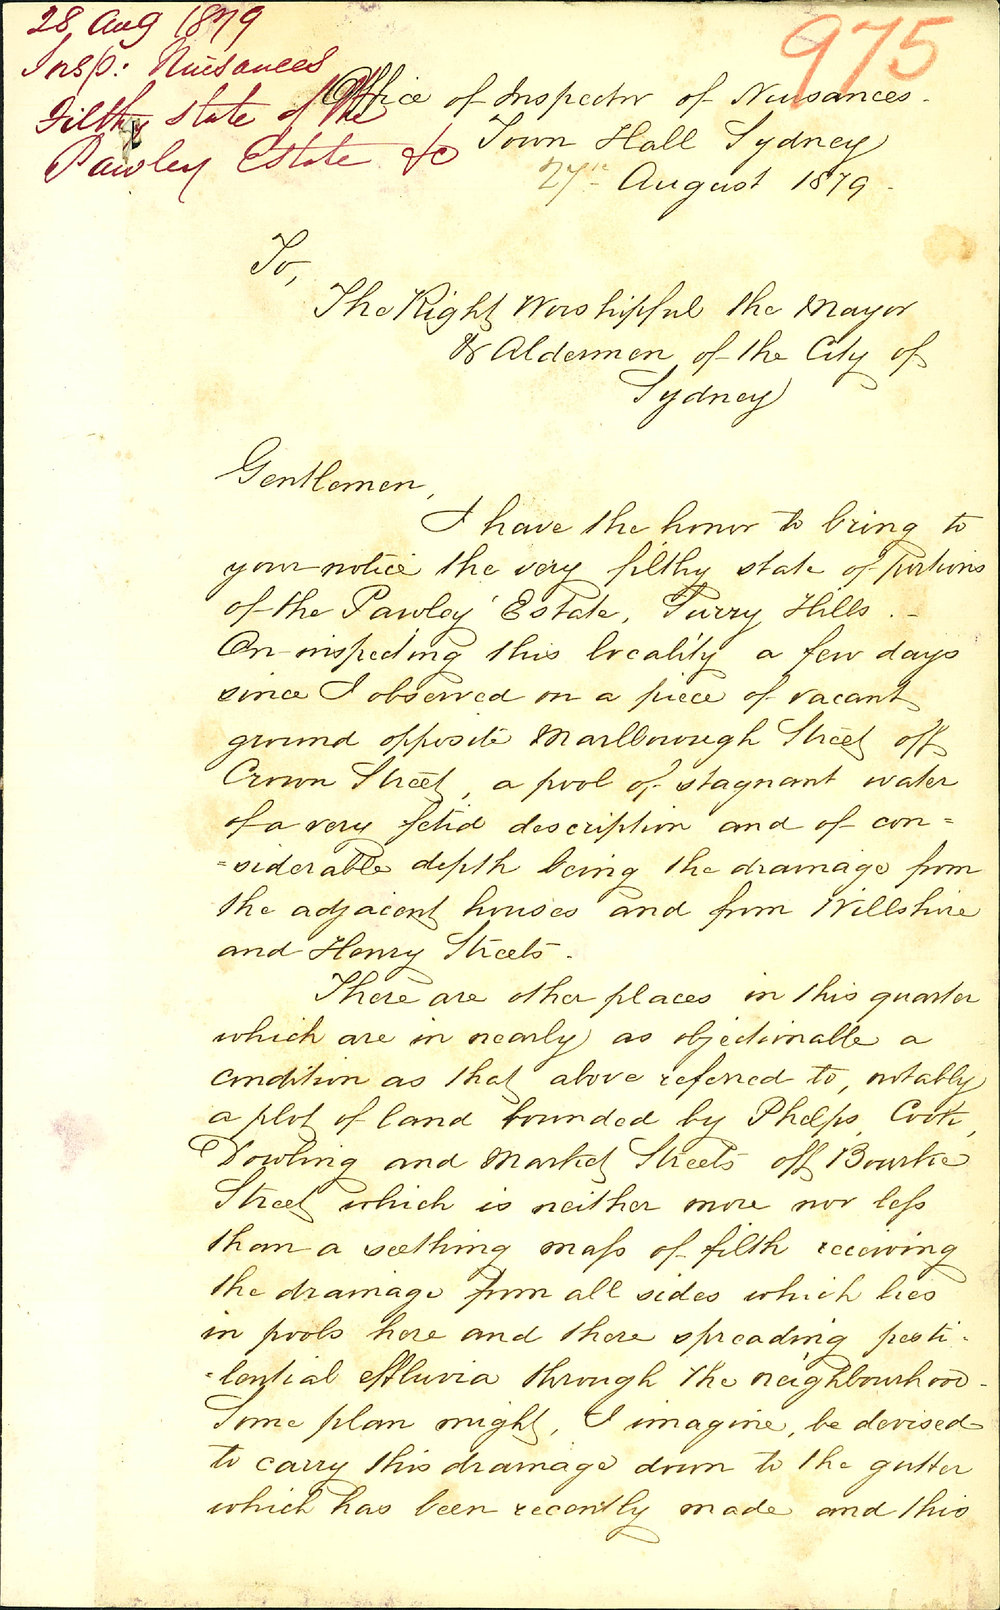 28 Aug 1879
Insp: Nuisances
Filthy state of the
Pawley Estate &c
975
Office of Inspector of Nuisances.
Town Hall Sydney
27th August 1879.
To,
The Right Worshipful the Mayor
& Aldermen of the City of
Sydney
Gentlemen,
I have the honor to bring to
your notice the very filthy state of portions
of the Pawley Estate, Surry Hills.-
On inspecting this locality a few days
since I observed on a piece of vacant
ground opposite Marlborough Street off
Crown Street, a pool of stagnant water
of a very fetid description and of con=
=siderable depth being the drainage from
the adjacent houses and from Willshire
and Henry Streets.
There are other places in this quarter
which are in nearly as objectionable a
condition as that above referred to, notably
a plot of land bounded by Phelps, Cooke,
Dowling and Market Streets off Bourke
Street which is neither more nor less
than a seething mass of filth receiving
the drainage from all sides which lies
in pools here and there spreading pesti-
-lential effluvia through the neighbourhood.
Some plan might, I imagine, be devised
to carry this drainage down to the gutter
which has been recently made and this